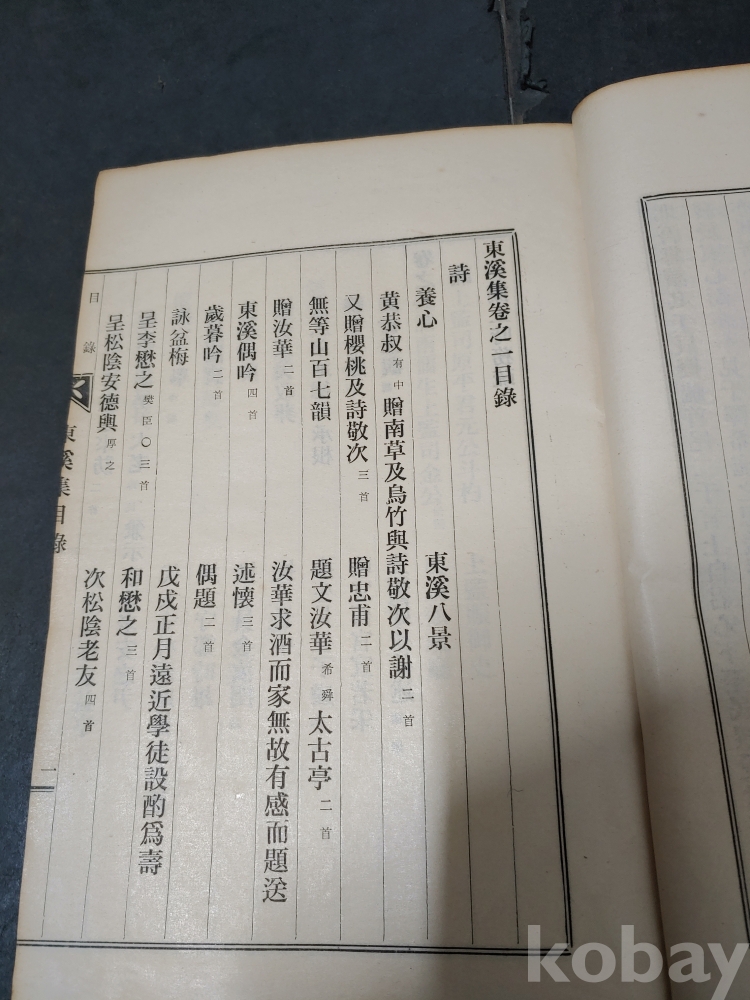 東溪集卷之一目錄
詩
養心 東溪八景
黃恭叔有中贈南草及烏竹與詩敬次以謝二首
又贈櫻桃及詩敬次三首 贈忠甫二首
無等山百七韻 題文汝華希舜太古亭二首
贈汝華二首 汝華求酒而家無故有感而題送
東溪偶吟四首 述懷三首
歲暮吟二首 偶題二首
詠盆梅 戊戌正月遠近學徒設酌爲壽
呈李懋之樊臣〇三首 和懋之三首
呈松陰安德輿厚之 次松陰老友四首
目錄 東溪集目錄 一
kobay